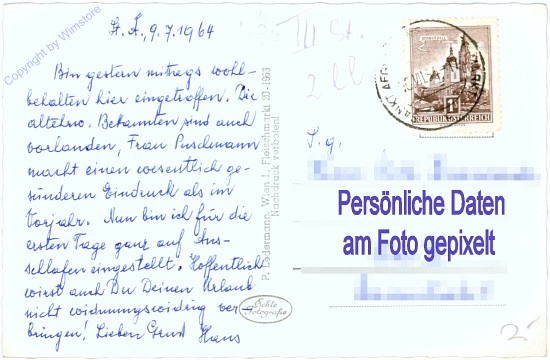 Copyright by Wimstore
St. Ä., 9.7.1964
Bin gestern mittags wohl-
behalten hier eingetroffen. Die
altehrw. Bekannten sind auch
vorhanden, Frau Puschmann
macht einen wesentlich ge-
sünderen Eindruck als im
Vorjahr. Nun bin ich für die
ersten Tage ganz auf Aus-
schlafen eingestellt. Hoffentlich
wirst auch Du Deinen Urlaub
nicht widmungswidrig ver-
bringen! Lieben Gruß Hans
P. Ledermann, Wien 1, Fleischmarkt 20-1963
Nachdruck verboten!
Echte
Fotografie
REPUBLIK ÖSTERREICH
S. g.
Persönliche Daten
am Foto gepixelt
2.-